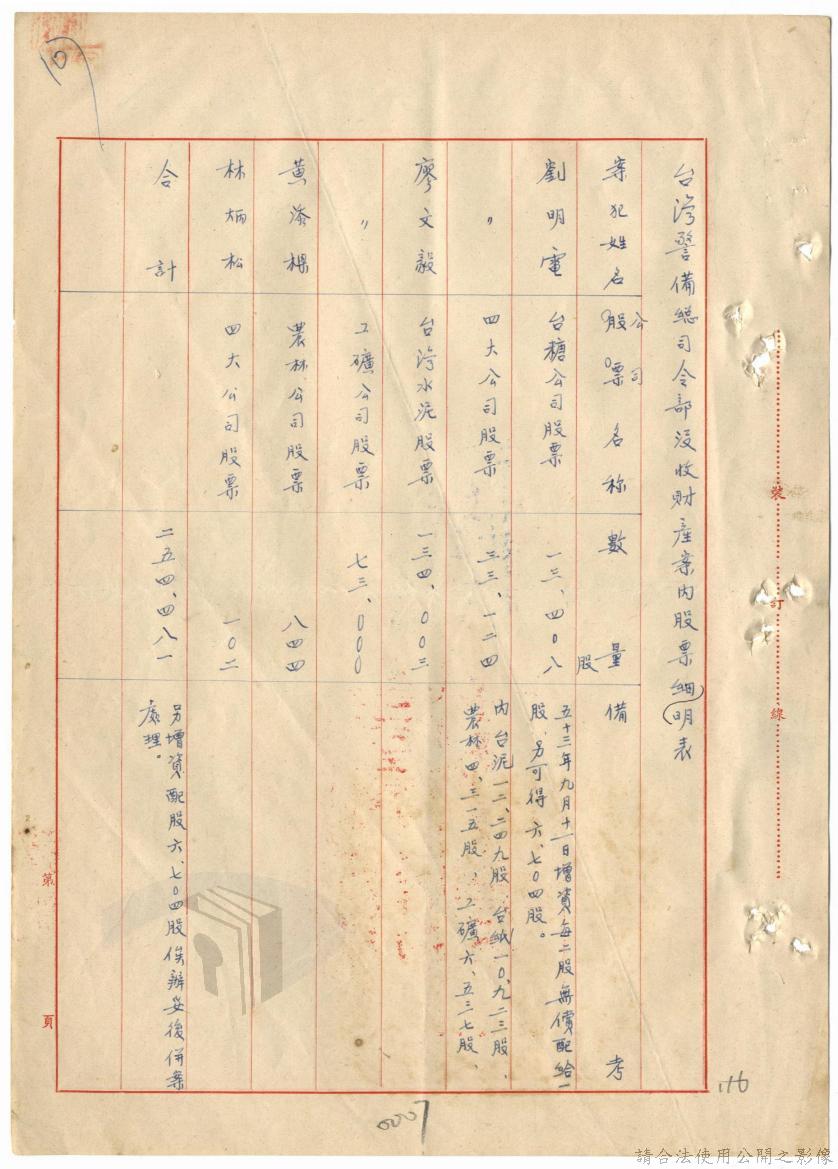 台湾警備総司令部沒收財產案內股票細明表
案犯姓名 股票名称 數量 備考
公司
股
劉明電 台糖公司股票 一三、四0八 五十三年九月十一日增資每二股無償配給一股，另可得六、七0四股。
〃 四大公司股票 三三、一二四 內台泥一二、二四九股、台紙一0、九二三股、農林四、三一五股、工礦六、五三七股、
廖文毅 台湾水泥股票 一三四、00三
〃 工礦公司股票 七三、000
黃添樑 農林公司股票 八四四
林炳松 四大公司股票 一0二
合計 二五四、四八一 另增資配股六、七0四股俟辦妥後併案處理。
裝
訂
線
第
頁
10
116
0007
請合法使用公開之影像